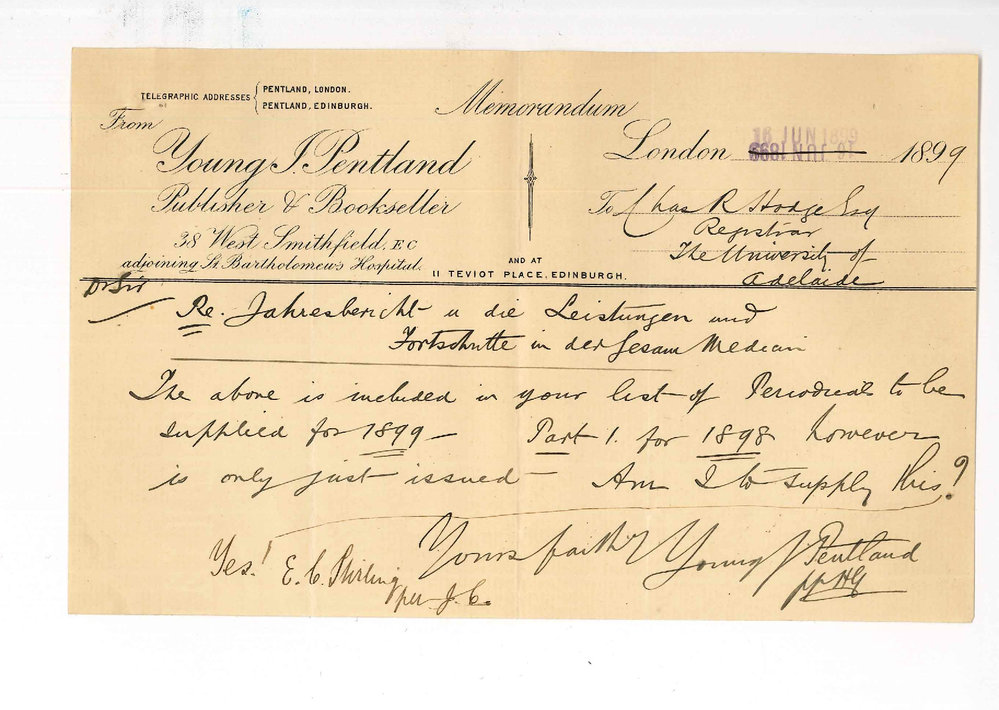 TELEGRAPHIC ADDRESSES { PENTLAND, LONDON.
PENTLAND, EDINBURGH.
Memorandum
From
Young J. Pentland
Publisher & Bookseller
38 West Smithfield, E C
adjoining St. Bartholomew's Hospital.
AND AT
11 TEVIOT PLACE, EDINBURGH.
London 16 JUN 1899 1899
16 JUN 1899
To Chas R Hodge Esq
Registrar
The University of
Adelaide
Dr Sir
Re. Jahresbericht u die Leistungen und
Fortschritte in der Gesam Medecin
The above is included in your list of Periodicals to be
supplied for 1899 - Part 1. for 1898 however
is only just issued - Am I to supply this?
Yours faithy Young J Pentland
pp HG
Yes! E. C. Stirling
per J. C.